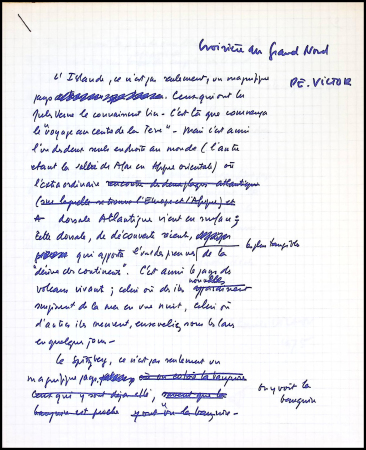 Croisière du Grand Nord
P.E. VICTOR
L'Islande, ce n'est pas seulement, un magnifique
pays
Ceux qui ont lu
Jules Verne le connaissent bien - C'est là que commença
le "voyage au centre de la Terre" - Mais c'est aussi
l'un des deux seuls endroits au monde (l'autre
étant la vallée de Afar en Afrique orientale) où
l'extraordinaire rencontre de deux plaques atlantique
(sur laquelle se trouvent l'Europe et l'Afrique) et
dorsale Atlantique vient en surface ;
cette dorsale, de découverte récente,
qui apporte l'une des preuves les plus tangibles de la
"dérive des continents". C'est aussi le pays des
volcans vivants ; celui où des îles nouvelles
surgissent de la mer en une nuit, celui où
d'autres îles meurent, ensevelies sous les laves
en quelques jours -
Le Spitzberg, ce n'est pas seulement un
magnifique pays, où on voit la banquise
Ceux qui y sont déjà allé, savent que la
banquise est proche y ont vu la banquise -
on y voit la
banquise